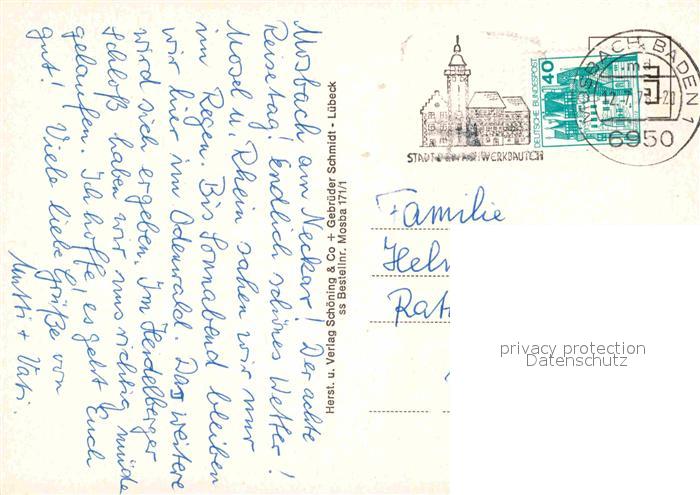 Mosbach am Neckar! Der achte
Reisetag! Endlich schönes Wetter!
Mosel u. Rhein sahen wir nur
im Regen. Bis Sonnabend bleiben
wir hier im Odenwald. Das weitere
wird sich ergeben. Im Heidelberger
Schloß haben wir uns richtig müde
gelaufen. Ich hoffe, es geht Euch
gut! Viele liebe Grüße von
Mutti + Vati.
Herst. u. Verlag Schöning & Co + Gebrüder Schmidt - Lübeck
ss Bestellnr. Mosba 171/1
DEUTSCHE BUNDESPOST
40
MOSBACH, BADEN 1
12.7.
6950
Familie
Helm
Rat
privacy protection
Datenschutz